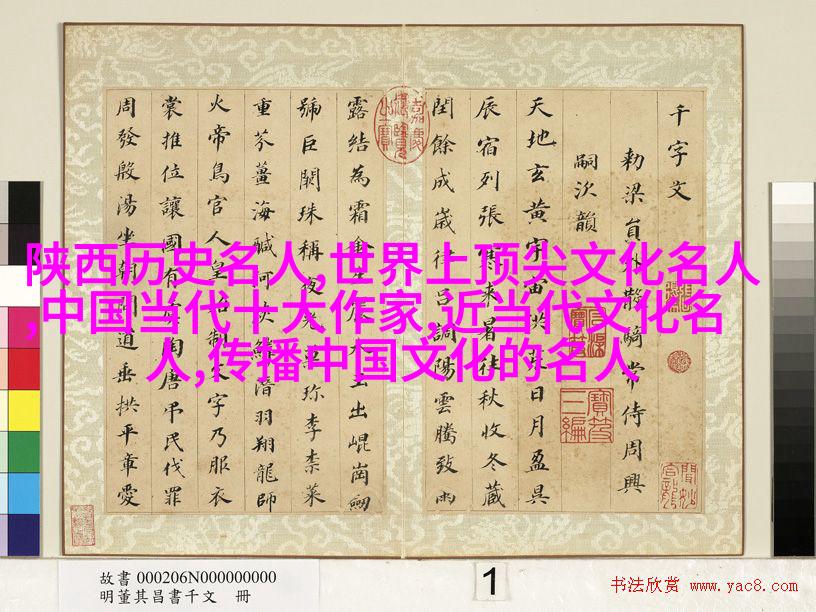 千字文
勅梁員外散騎常侍周興
嗣次韻
天地玄黃宇宙洪荒日月盈昃
辰宿列張寒來暑往秋收冬藏
閏餘成歲律呂調陽雲騰致雨
露結為霜金生麗水玉出崐崗劒
號巨闕珠稱夜光果珍李柰菜
重芥薑海鹹河淡鱗潛羽翔龍師
火帝鳥官人皇始制文字乃服衣
裳推位讓國有虞陶唐弔民伐罪
周發殷湯坐朝問道垂拱平章愛
嘉慶御覽之寶
寶笈三編
陕西历史名人,世界上顶尖文化名人
,中国当代十大作家,近当代文化名
人,传播中国文化的名人
故書 000206N000000000
明董其昌書千文 冊
1
书法欣赏 www.yac8.com